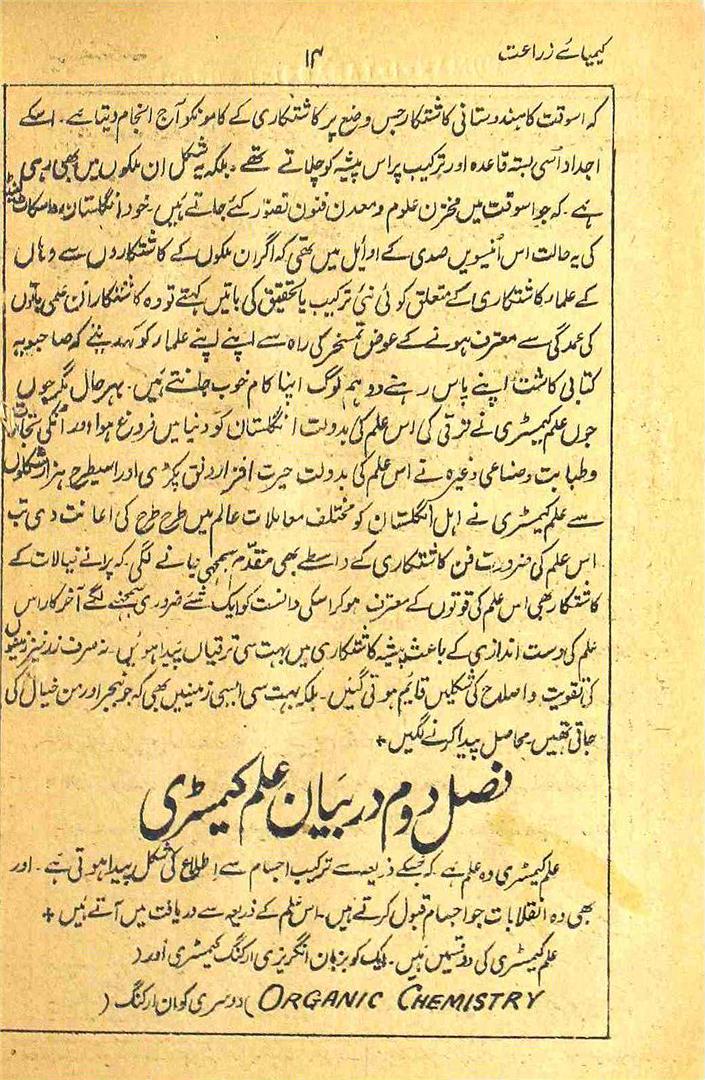 کیمیائے زراعت
۱۴
کہ اسوقت کا ہندوستانی کاشتکار جس وضع پر کاشتکاری کے کامونکو آج انجام دیتا ہے۔ اسکے
اجداد اسی بستہ قاعدہ اور ترکیب پر اس پیشہ کو چلاتے تھے۔ بلکہ یہ شکل ان ملکوں میں بھی رہی
ہے۔ کہ جو اسوقت میں مخزن علوم و معدن فنون تصوّر کئے جاتے ہیں۔ خود انگلستان، واسکاٹلینڈ
کی یہ حالت اس اُنیسویں صدی کے اوائل میں تھی کہ اگر ان ملکوں کے کاشتکاروں سے وہاں
کے علماء کاشتکاری کے متعلق کوئی نئی ترکیب یا تحقیق کی باتیں کہتے تو وہ کاشتکار ان علمی باتوں
کی عمدگی سے معترف ہونے کے عوض تمسخر کی راہ سے اپنے اپنے علماء کو کہدیتے کہ صاحبو یہ
کتابی کاشت اپنے پاس رہنے دو ہم لوگ اپنا کام خوب جانتے ہیں۔ بہر حال مگر جوں
جوں علم کیمسٹری نے ترقی کی اس علم کی بدولت انگلستان کو دنیا میں فروغ ہوا اور اُنکی تجارت
و طبابت و صناعی وغیرہ نے اس علم کی بدولت حیرت افزا رونق پکڑی اور اسیطرح ہزار شکلوں
سے علم کیمسٹری نے اہل انگلستان کو مختلف معاملات عالم میں طرح طرح کی اعانت دی تب
اس علم کی ضرورت فن کاشتکاری کے واسطے بھی مقدّم سمجھی جانے لگی کہ پرانے خیالات کے
کاشتکار بھی اس علم کی قوتوں کے معترف ہوکر اسکی دانست کو ایک شئے ضروری سمجھنے لگے آخر کار اس
علم کی دست اندازی کے باعث پیشہ کاشتکاری میں بہت سی ترقیاں پیدا ہوئیں۔ نہ صرف زرخیز زمینوں
کی تقویت و اصلاح کی شکلیں قایم ہوتی گئیں۔ بلکہ بہت سی ایسی زمینیں بھی کہ جو بنجر اور من خیال کی
جاتی تھیں۔ محاصل پیدا کرنے لگیں +
فصل دوم در بیان علم کیمسٹری
علم کیمسٹری وہ علم ہے۔ کہ جسکے ذریعہ سے ترکیب اجسام سے اطلاع کی شکل پیدا ہوتی ہے۔ اور
بھی وہ انقلابات جو اجسام قبول کرتے ہیں۔ اس علم کے ذریعہ سے دریافت میں آتے ہیں +
علم کیمسٹری کی دو قسمیں ہیں۔ ایک کو بزبان انگریزی ارکنگ کیمسٹری اور (
ORGANIC CHEMISTRY) دوسری کو ان ارکنگ (